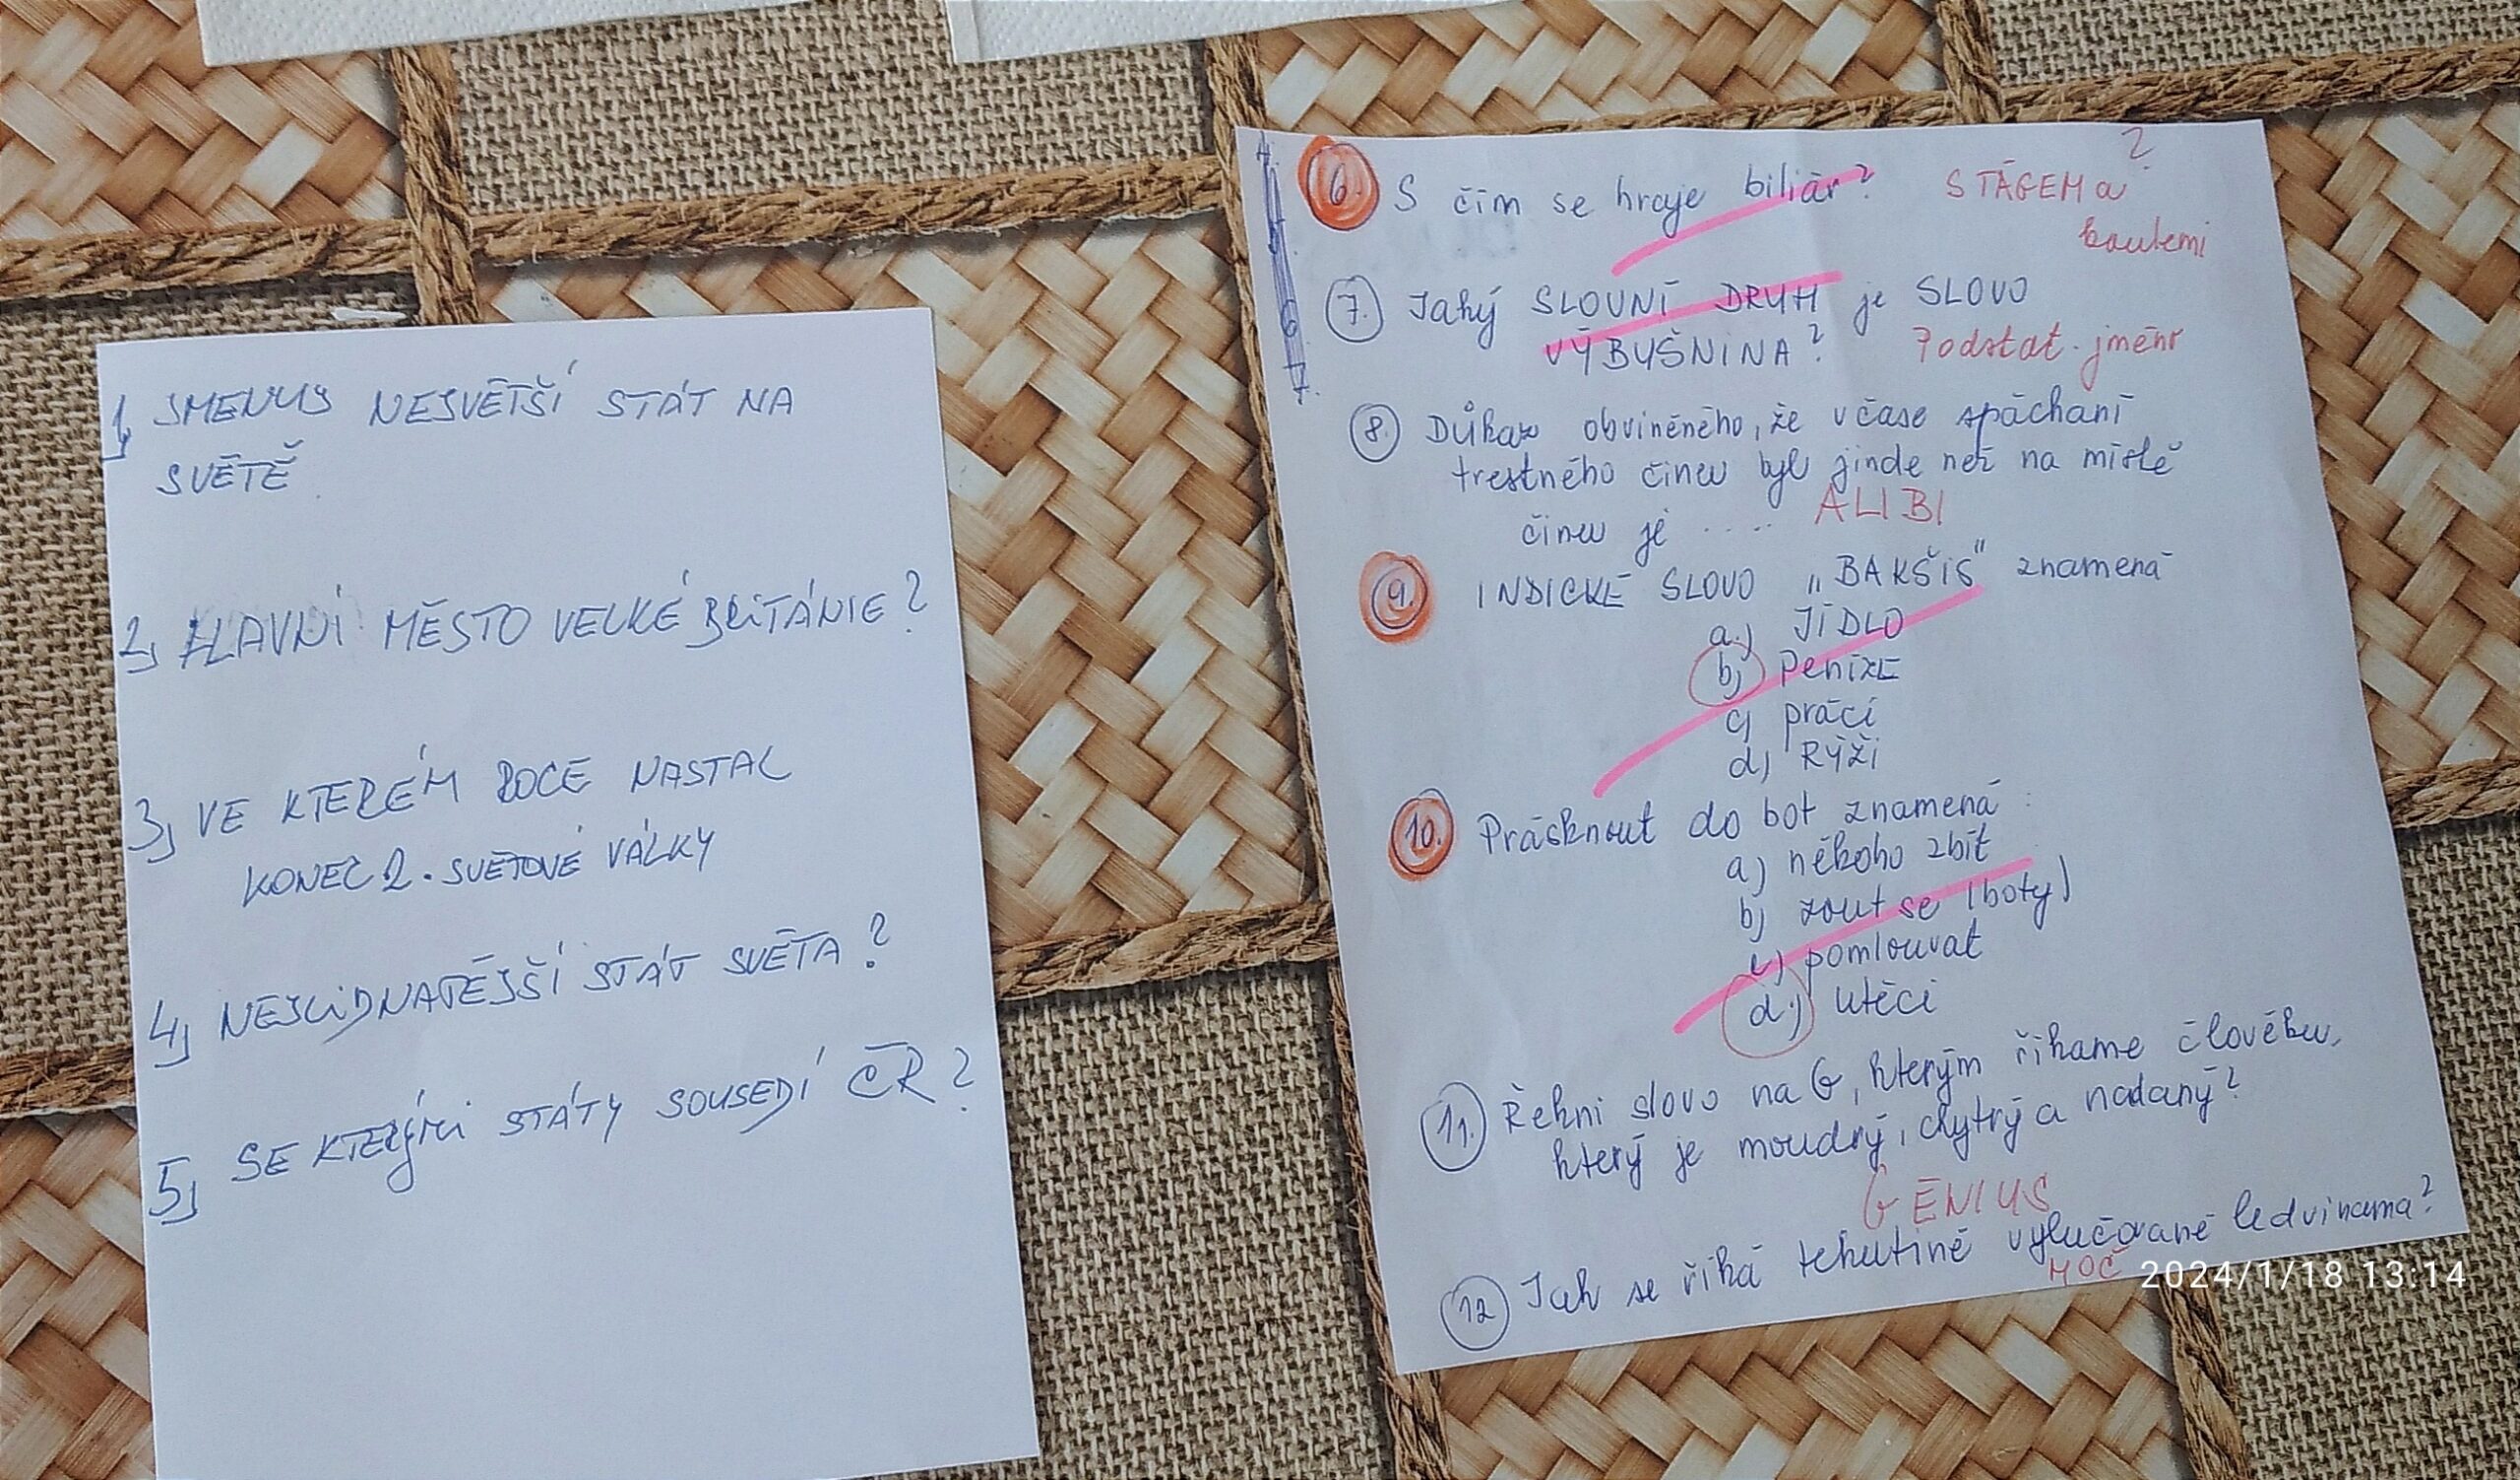 1, JMENUJ NEJVĚTŠÍ STÁT NA
SVĚTĚ
2, HLAVNÍ MĚSTO VELKÉ BRITÁNIE?
3, VE KTERÉM ROCE NASTAL
KONEC 2. SVĚTOVÉ VÁLKY
4, NEJLIDNATĚJŠÍ STÁT SVĚTA?
5, SE KTERÝMI STÁTY SOUSEDÍ ČR?
6. S čím se hraje biliár? S TÁGEM a
?
koulemi
7. Jaký SLOVNÍ DRUH je SLOVO
VÝBUŠNINA? Podstat. jméno
8. Důkaz obviněného, že v čase spáchaní
trestného činu byl jinde než na místě
činu je ..... ALIBI
9. INDICKÉ SLOVO „BAKŠIŠ" znamená
a.) JÍDLO
b) PENÍZE
c) práci
d) RÝŽI
10. Prásknout do bot znamená:
a) někoho zbít
b) zout se (boty)
c) pomlouvat
d.) utéci
11. Řekni slovo na G, kterým říkame člověku,
který je moudrý, chytrý a nadaný?
GÉNIUS
12 Jak se říká tekutině vylučované ledvinama?
MOČ
2024/1/18 13:14